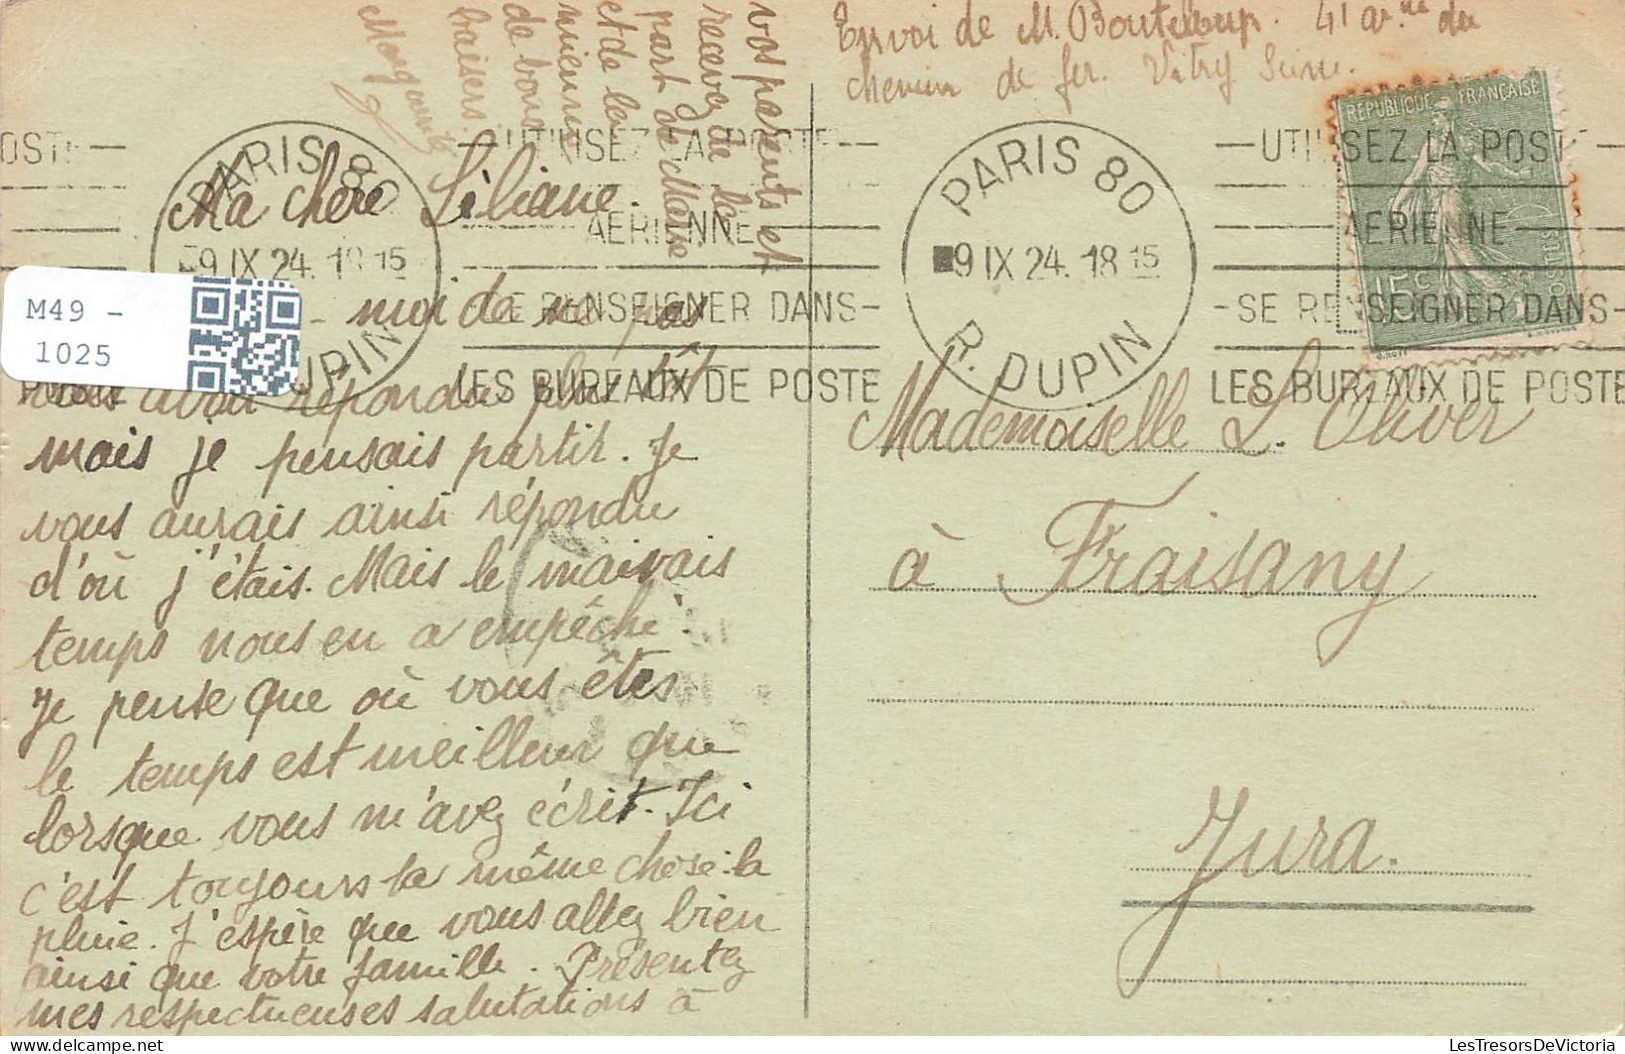 Envoi de M. Bouteloup. 41 av. du
chemin de fer. Vitry Seine.
REPUBLIQUE FRANÇAISE
15c
PARIS 80
9 IX 24. 18 15
R. DUPIN
UTILISEZ LA POSTE
AERIENNE
SE RENSEIGNER DANS
LES BUREAUX DE POSTE
PARIS 80
9 IX 24. 18 15
R. DUPIN
UTILISEZ LA POSTE
AERIENNE
SE RENSEIGNER DANS
LES BUREAUX DE POSTE
M49 -
1025
Ma chère Liliane.
moi de ne pas
vous avoir répondu plus tôt
mais je pensais partir. Je
vous aurais ainsi répondu
d'où j'étais. Mais le mauvais
temps nous en a empêché.
Je pense que où vous êtes
le temps est meilleur que
lorsque vous m'avez écrit. Ici
c'est toujours la même chose: la
pluie. J'espère que vous allez bien
ainsi que votre famille. Présentez
mes respectueuses salutations à
vos parents et
recevez de la
part de Marie
et de la
mienne
de bons
baisers.
Marguerite
Mademoiselle L. Olivier
à Fraisany
Jura.
LesTresorsDeVictoria